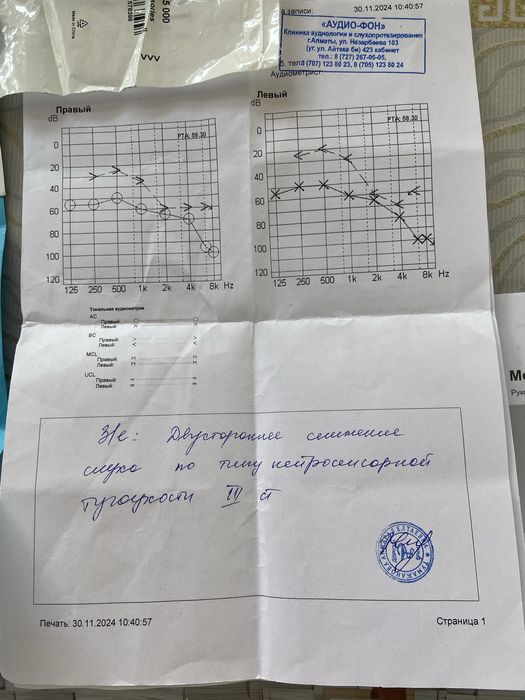 5 000
sories
Made in China
а записи: 30.11.2024 10:40:57
«АУДИО-ФОН»
Клиника аудиологии и слухопротезирования
г.Алматы, ул. Назарбаева 103
(уг. ул. Айтеке би) 423 кабинет
тел.: 8 (727) 267-05-05,
б. тел8 (707) 123 80 23, 8 (705) 123 80 24
Аудиометрист:
Правый
dB
PTA: 58.30
0
20
40
60
80
100
120
125 250 500 1k 2k 4k 8k Hz
Левый
dB
PTA: 58.30
0
20
40
60
80
100
120
125 250 500 1k 2k 4k 8k Hz
Тональная аудиометрия
AC
Правый:
Левый:
BC
Правый:
Левый:
MCL
Правый:
Левый:
UCL
Правый:
Левый:
З/е: Двустороннее снижение
слуха по типу нейросенсорной
тугоухости III ст
Печать: 30.11.2024 10:40:57
Страница 1